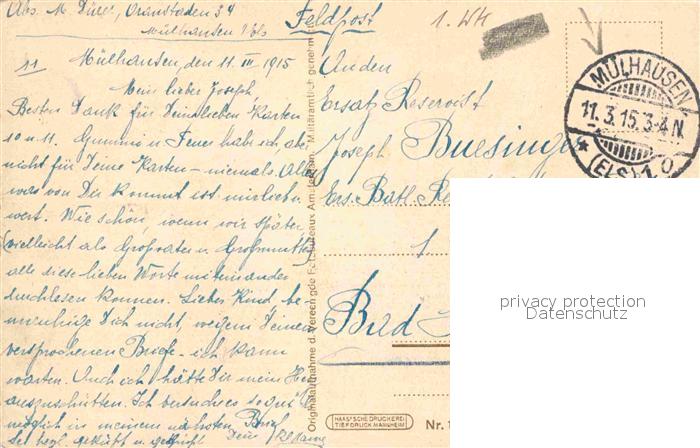 Abs. M. Oranstaden 34
Mülhausen
Feldpost
1. WK
11 Mülhausen, den 11. III 1915
Mein lieber Joseph,
Besten Dank für Deine lieben Karten
10 u 11. Gummi u. habe ich, aber
nicht für Deine Karten - niemals. Alles
was von Dir kommt ist mir lieb u.
wert. Wie schön, wenn wir später
(vielleicht als Grossvater u. Grossmutter)
alle diese lieben Worte miteinander
durchlesen können. Liebes Kind be-
unruhige Dich nicht, wegen Deinem
versprochenen Briefe - ich kann
warten. Auch ich hätte Dir mein Herz
auszuschütten. Ich versuche es so gut
möglich in meinem nächsten Brief
Sei tägl. gegrüßt und geküsst
Dein
An den
Ersatz Reservist
Joseph Buesing
Ers. Batl.
1
Bad
MÜLHAUSEN
11.3.15.3-4 N.
* (ELS) 1 o
Originalaufnahme d. Vereinigte Militäramtlich genehm
HAAS'SCHE DRUCKEREI
TIEFDRUCK MANNHEIM
Nr.
privacy protection
Datenschutz